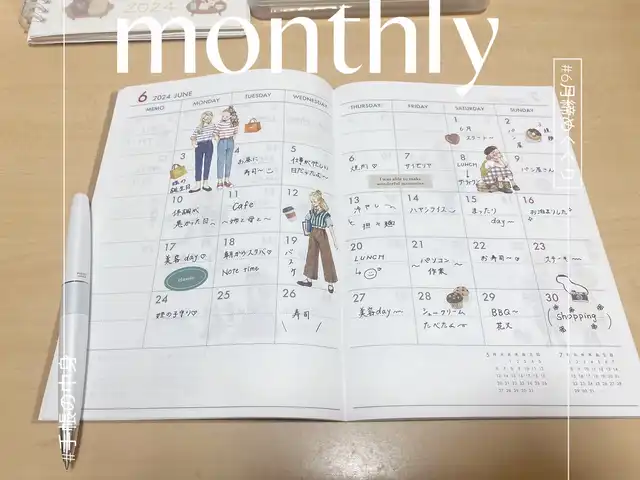 2024
monthly
#6月締めくくり
6 2024 JUNE
MEMO MONDAY TUESDAY WEDNESDAY THURSDAY FRIDAY SATURDAY SUNDAY
1
6月
スタート〜
2
パン屋
3
誕生日
4
お昼に
寿司〜
5
仕事が忙しい
日だったよ〜
6
焼肉♡
7
サイゼリヤ
I was able to make
wonderful memories
8
LUNCH
↓
9
パン屋さん
10
体調が
悪かった日
11
Cafe
〜姉と母と〜
12
13
冷やし
と 担々麺
14
ハヤシライス
15
まったり
day〜
16
お泊まりした
17
美容day♡
thanks
18
朝からスタバ♡
Note time
19
バスケ
20
LUNCH
21
〜パソコン〜
作業
22
お寿司〜
23
ステーキ〜
24
姪の子守り♡
25
26
寿司
27
美容day〜
28
シュークリーム
たべたよ〜
29
BBQ〜
花火
30
Shopping
#手帳の中身